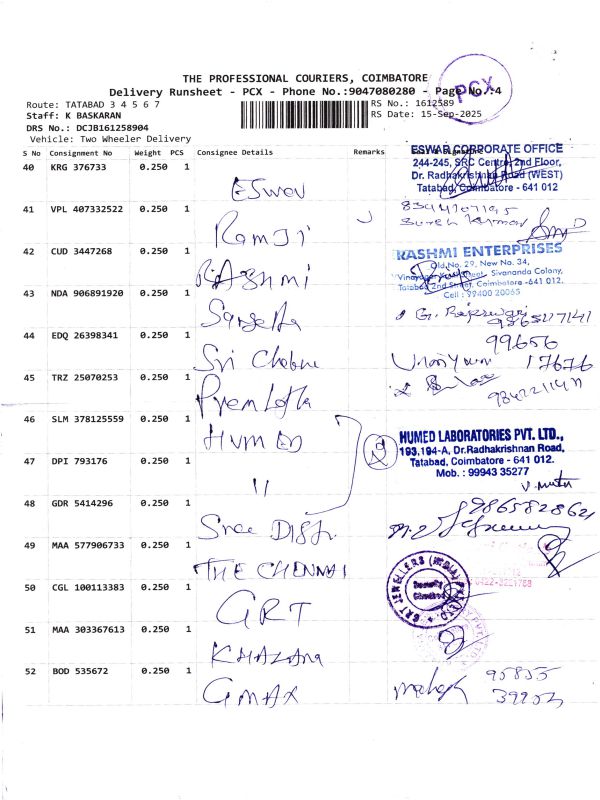 THE PROFESSIONAL COURIERS, COIMBATORE
Delivery Runsheet - PCX - Phone No.:9047080280 - Page No.:4
PCX
Route: TATABAD 3 4 5 6 7
RS No.: 1612589
Staff: K BASKARAN
RS Date: 15-Sep-2025
DRS No.: DCJB161258904
Vehicle: Two Wheeler Delivery
S No Consignment No Weight PCS Consignee Details Remarks
ESWAR CORPORATE OFFICE
244-245, SRC Centre, 2nd Floor,
Dr. Radhakrishnan Road (WEST)
Tatabad, Coimbatore - 641 012
40 KRG 376733 0.250 1
ESwar
41 VPL 407332522 0.250 1
RamJi
42 CUD 3447268 0.250 1
RAShmi
RASHMI ENTERPRISES
Old No. 29, New No. 34,
Sivananda Colony,
Tatabad 2nd Street, Coimbatore -641 012.
Cell : 99400 20065
43 NDA 906891920 0.250 1
Sangeetha
G. Rajeswari
44 EDQ 26398341 0.250 1
99656
17676
Sri
45 TRZ 25070253 0.250 1
Prem
9842211411
46 SLM 378125559 0.250 1
HUMED
HUMED LABORATORIES PVT. LTD.,
193,194-A, Dr.Radhakrishnan Road,
Tatabad, Coimbatore - 641 012.
Mob. : 99943 35277
47 DPI 793176 0.250 1
"
48 GDR 5414296 0.250 1
Sree DIST.
49 MAA 577906733 0.250 1
THE CHENNAI
0422-3221763
50 CGL 100113383 0.250 1
GRT
GRT JEWELLERS (INDIA) PVT. LTD.
51 MAA 303367613 0.250 1
KHAZANA
52 BOD 535672 0.250 1
GMAX
95855
39203